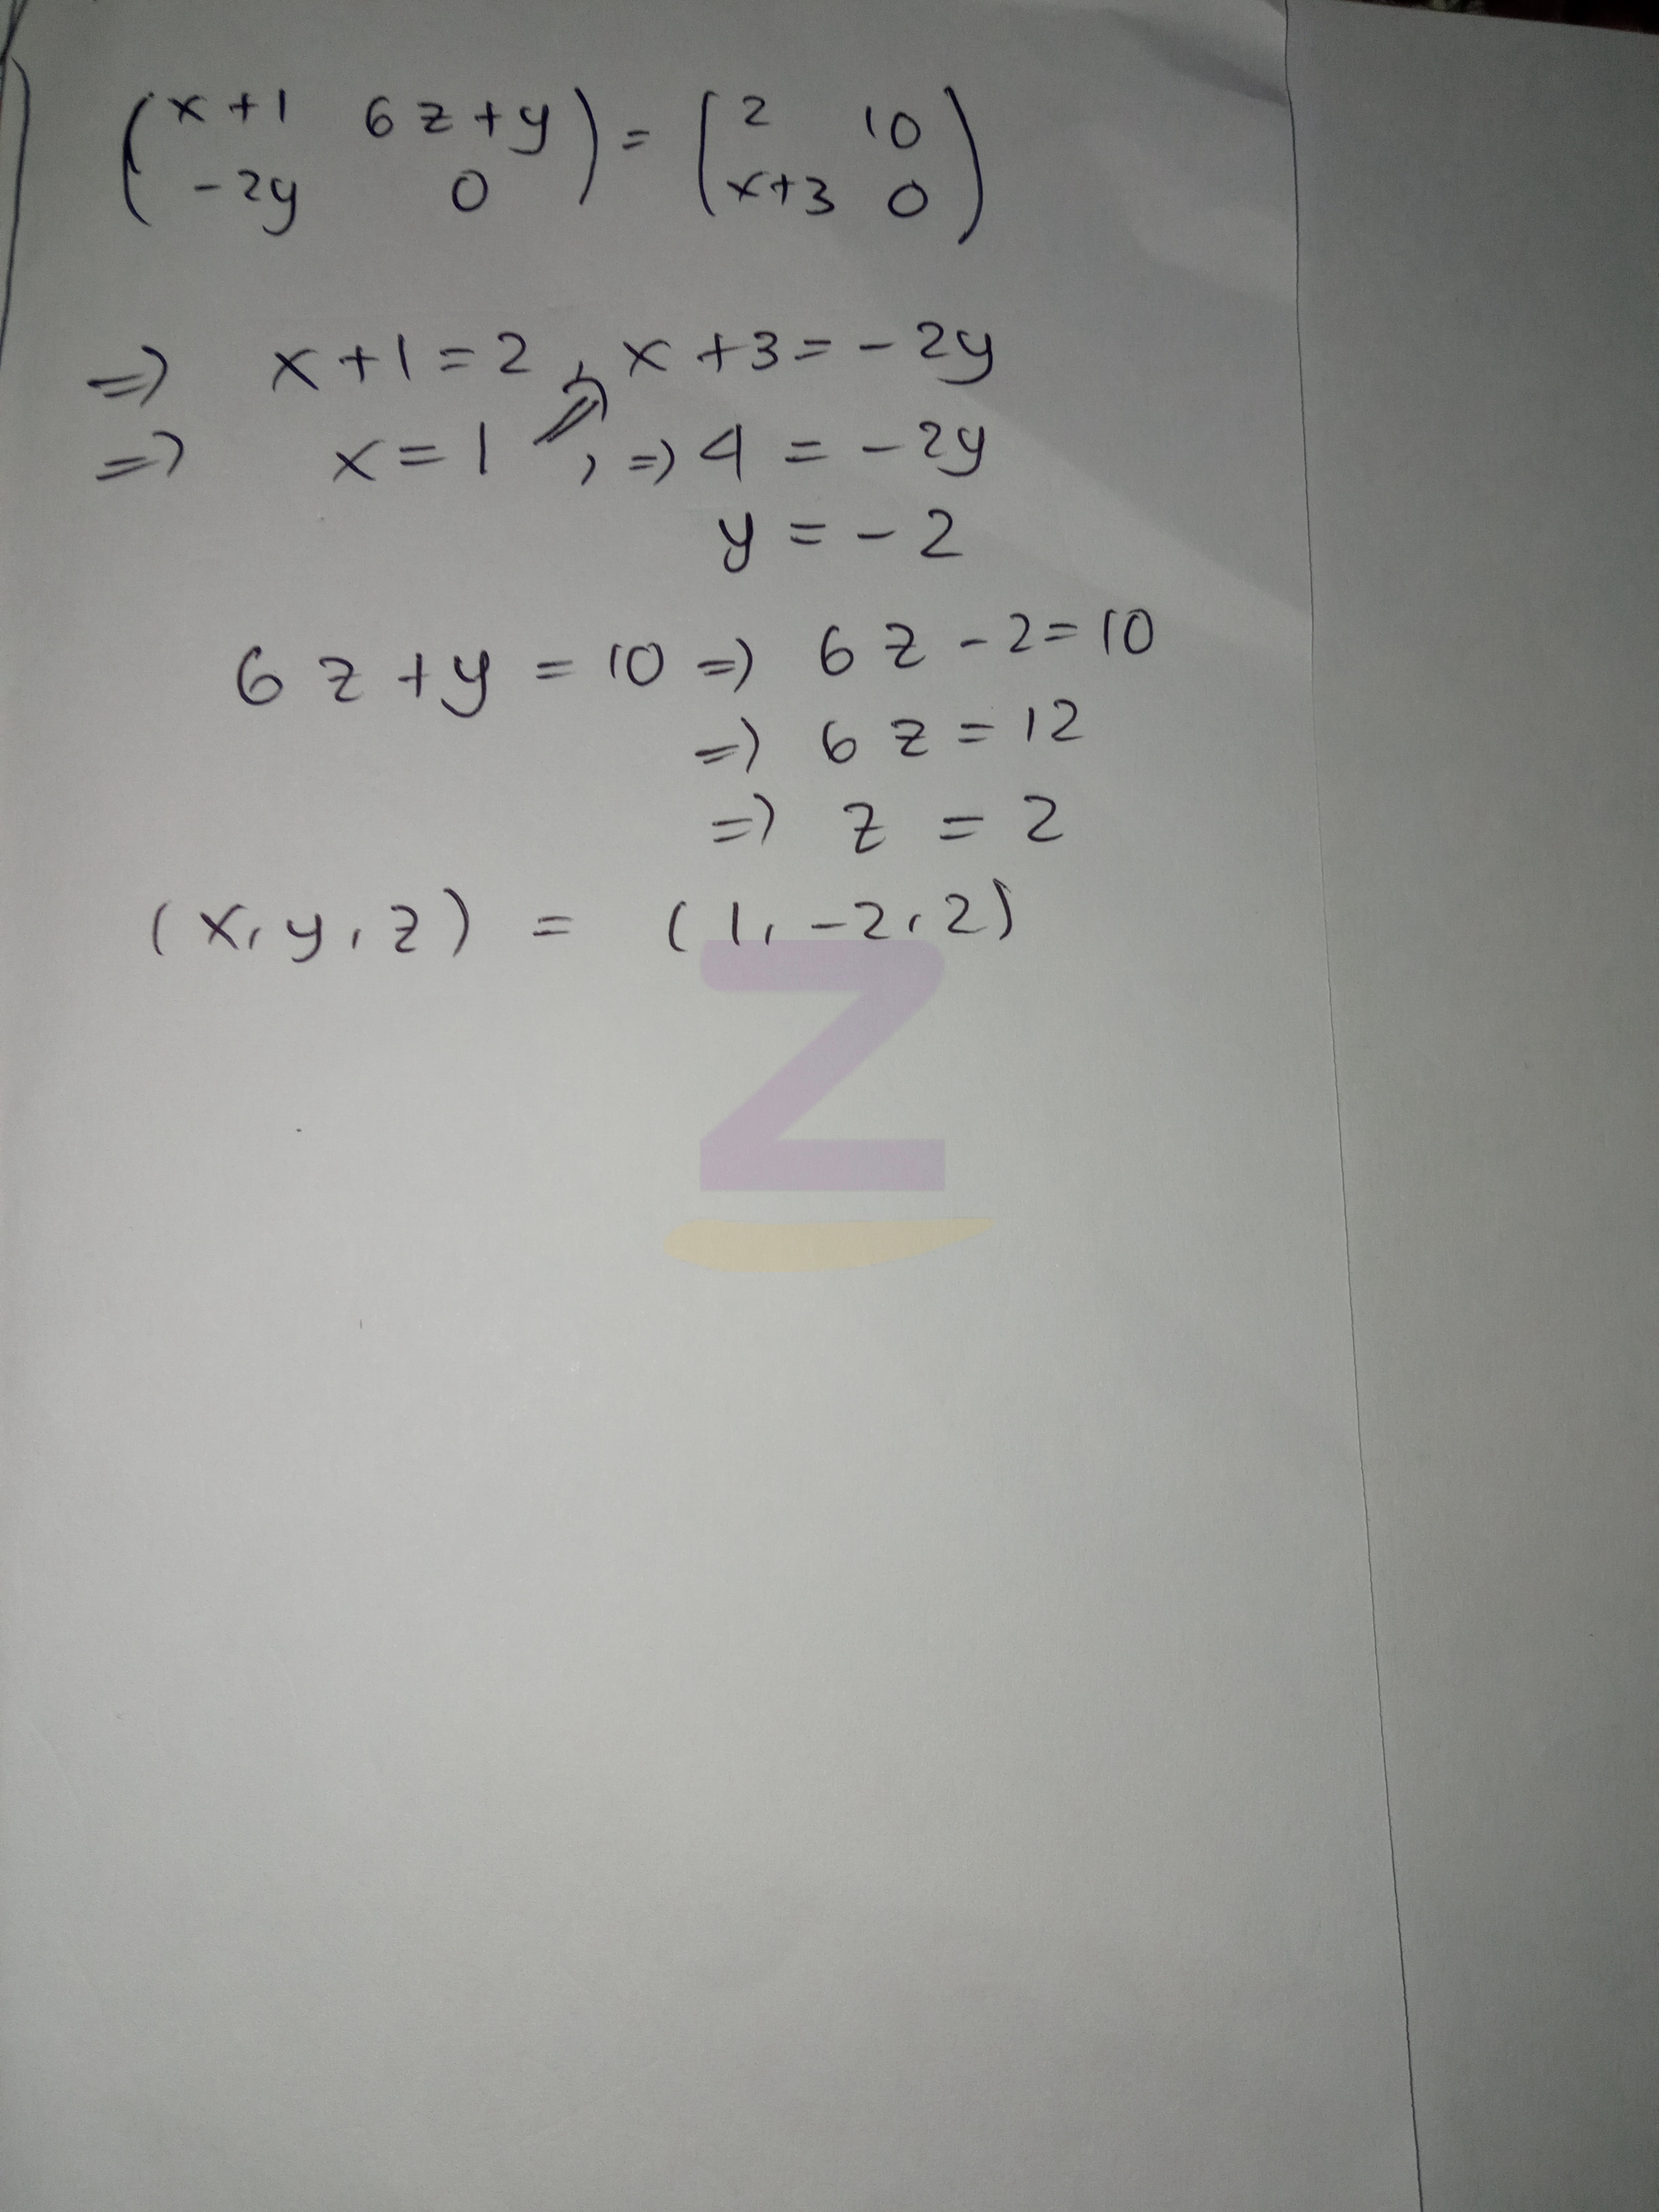 (x+1 6z+y) = (2 10)
(-2y 0) (x+3 0)
=> x+1=2, x+3=-2y
=> x=1 => , => 4=-2y
y=-2
6z+y=10 => 6z-2=10
=> 6z=12
=> z=2
(x,y,z) = (1,-2,2)
Z